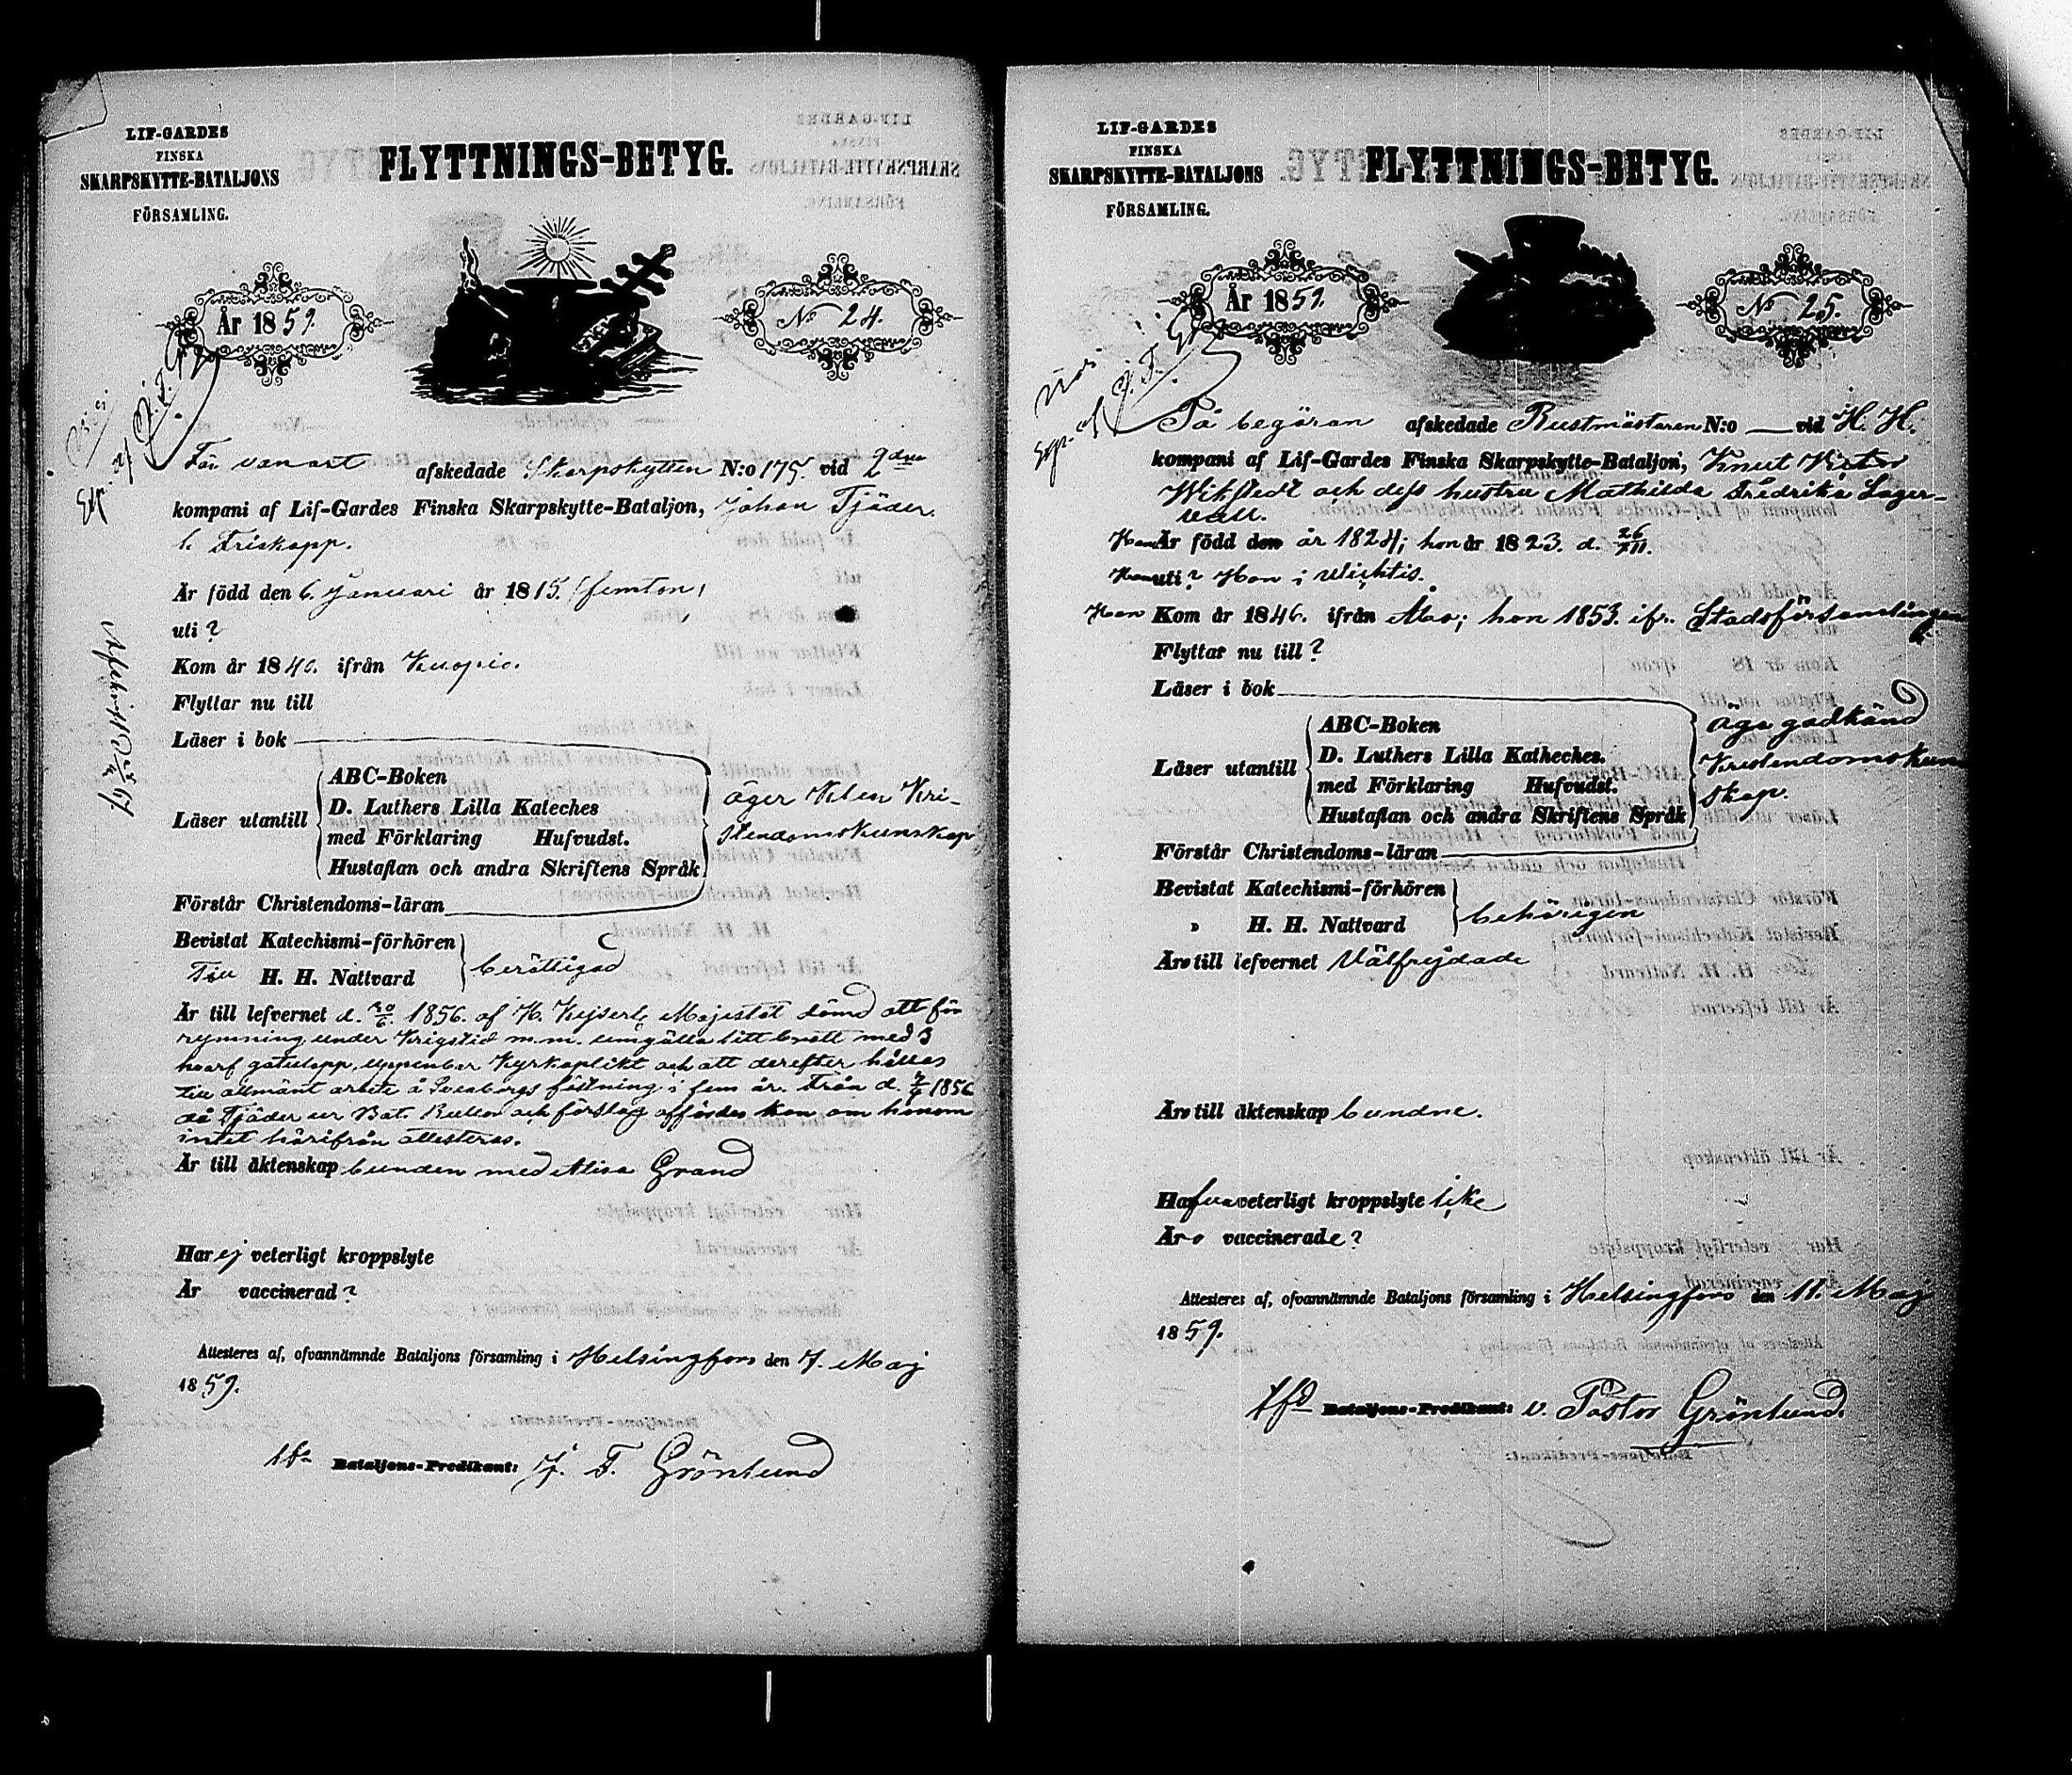 LIF-GARDES
FINSKA
SKARPSKYTTE-BATALJONS
FÖRSAMLING.
FLYTTNINGS-BETYG.
År 1859.
No 24.
Exp. af J. F. G
För vanart afskedade Skarpskytten N:o 175. vid 2dra
kompani af Lif-Gardes Finska Skarpskytte-Bataljon, Johan Tjäder.
l. Friskopp.
Är född den 6. Januari år 1815. (femton)
uti?
Kom år 1840. ifrån Kuopio.
Flyttar nu till
Läser i bok
Läser utantill
ABC-Boken
D. Luthers Lilla Kateches
med Förklaring Hufvudst.
Hustaflan och andra Skriftens Språk
äger klen Kri-
stendomskunskap
Förstår Christendoms-läran
Bevistat Katechismi-förhören
Till H. H. Nattvard
berättigad
Är till lefvernet d. 1856. af H. Kejserl. Majestät dömd att för
rymning under krigstid m.m. umgälla sitt brott med 3
hvarf gatulopp, uppenbar Kyrkoplikt och att derefter hållas
till allmänt arbete å Sveaborgs fästning i fem år. Från d. 1856
då Tjäder ur Bat. Rullor och förslag affördes kan om honom
intet härifrån attesteras.
Är till äktenskap bunden med Alisa Grand
Har ej veterligt kroppslyte
Är vaccinerad?
Attesteres af, ofvannämnde Bataljons församling i Helsingfors den 7. Maj
1859.
Bataljons-Predikant: J. F. Grönlund
LIF-GARDES
FINSKA
SKARPSKYTTE-BATALJONS
FÖRSAMLING.
FLYTTNINGS-BETYG.
År 1859.
No 25.
Exp. af J. F. G
På begäran afskedade Rustmästaren N:o — vid H. H.
kompani af Lif-Gardes Finska Skarpskytte-Bataljon, Knut Victor
Wikstedt och dess hustru Mathilda Fredrika Lager-
vall.
Han Är född den år 1824; hon år 1823. d. 26/VII.
Han uti? Hon i Wichtis.
Han Kom år 1846. ifrån Åbo; hon 1853. ifr. Stadsförsamlingen
Flyttar nu till?
Läser i bok
Läser utantill
ABC-Boken
D. Luthers Lilla Katheches.
med Förklaring Hufvudst.
Hustaflan och andra Skriftens Språk
äga godkänd
Kristendomskun
skap.
Förstår Christendoms-läran
Bevistat Katechismi-förhören
" H. H. Nattvard
behörigen
Äro till lefvernet Välfrejdade
Äro till äktenskap bundne.
Hafva veterligt kroppslyte icke
Äro vaccinerade?
Attesteres af, ofvannämnde Bataljons församling i Helsingfors den 11. Maj
1859.
Tfd Bataljons-Predikant: v. Pastor Grönlund.